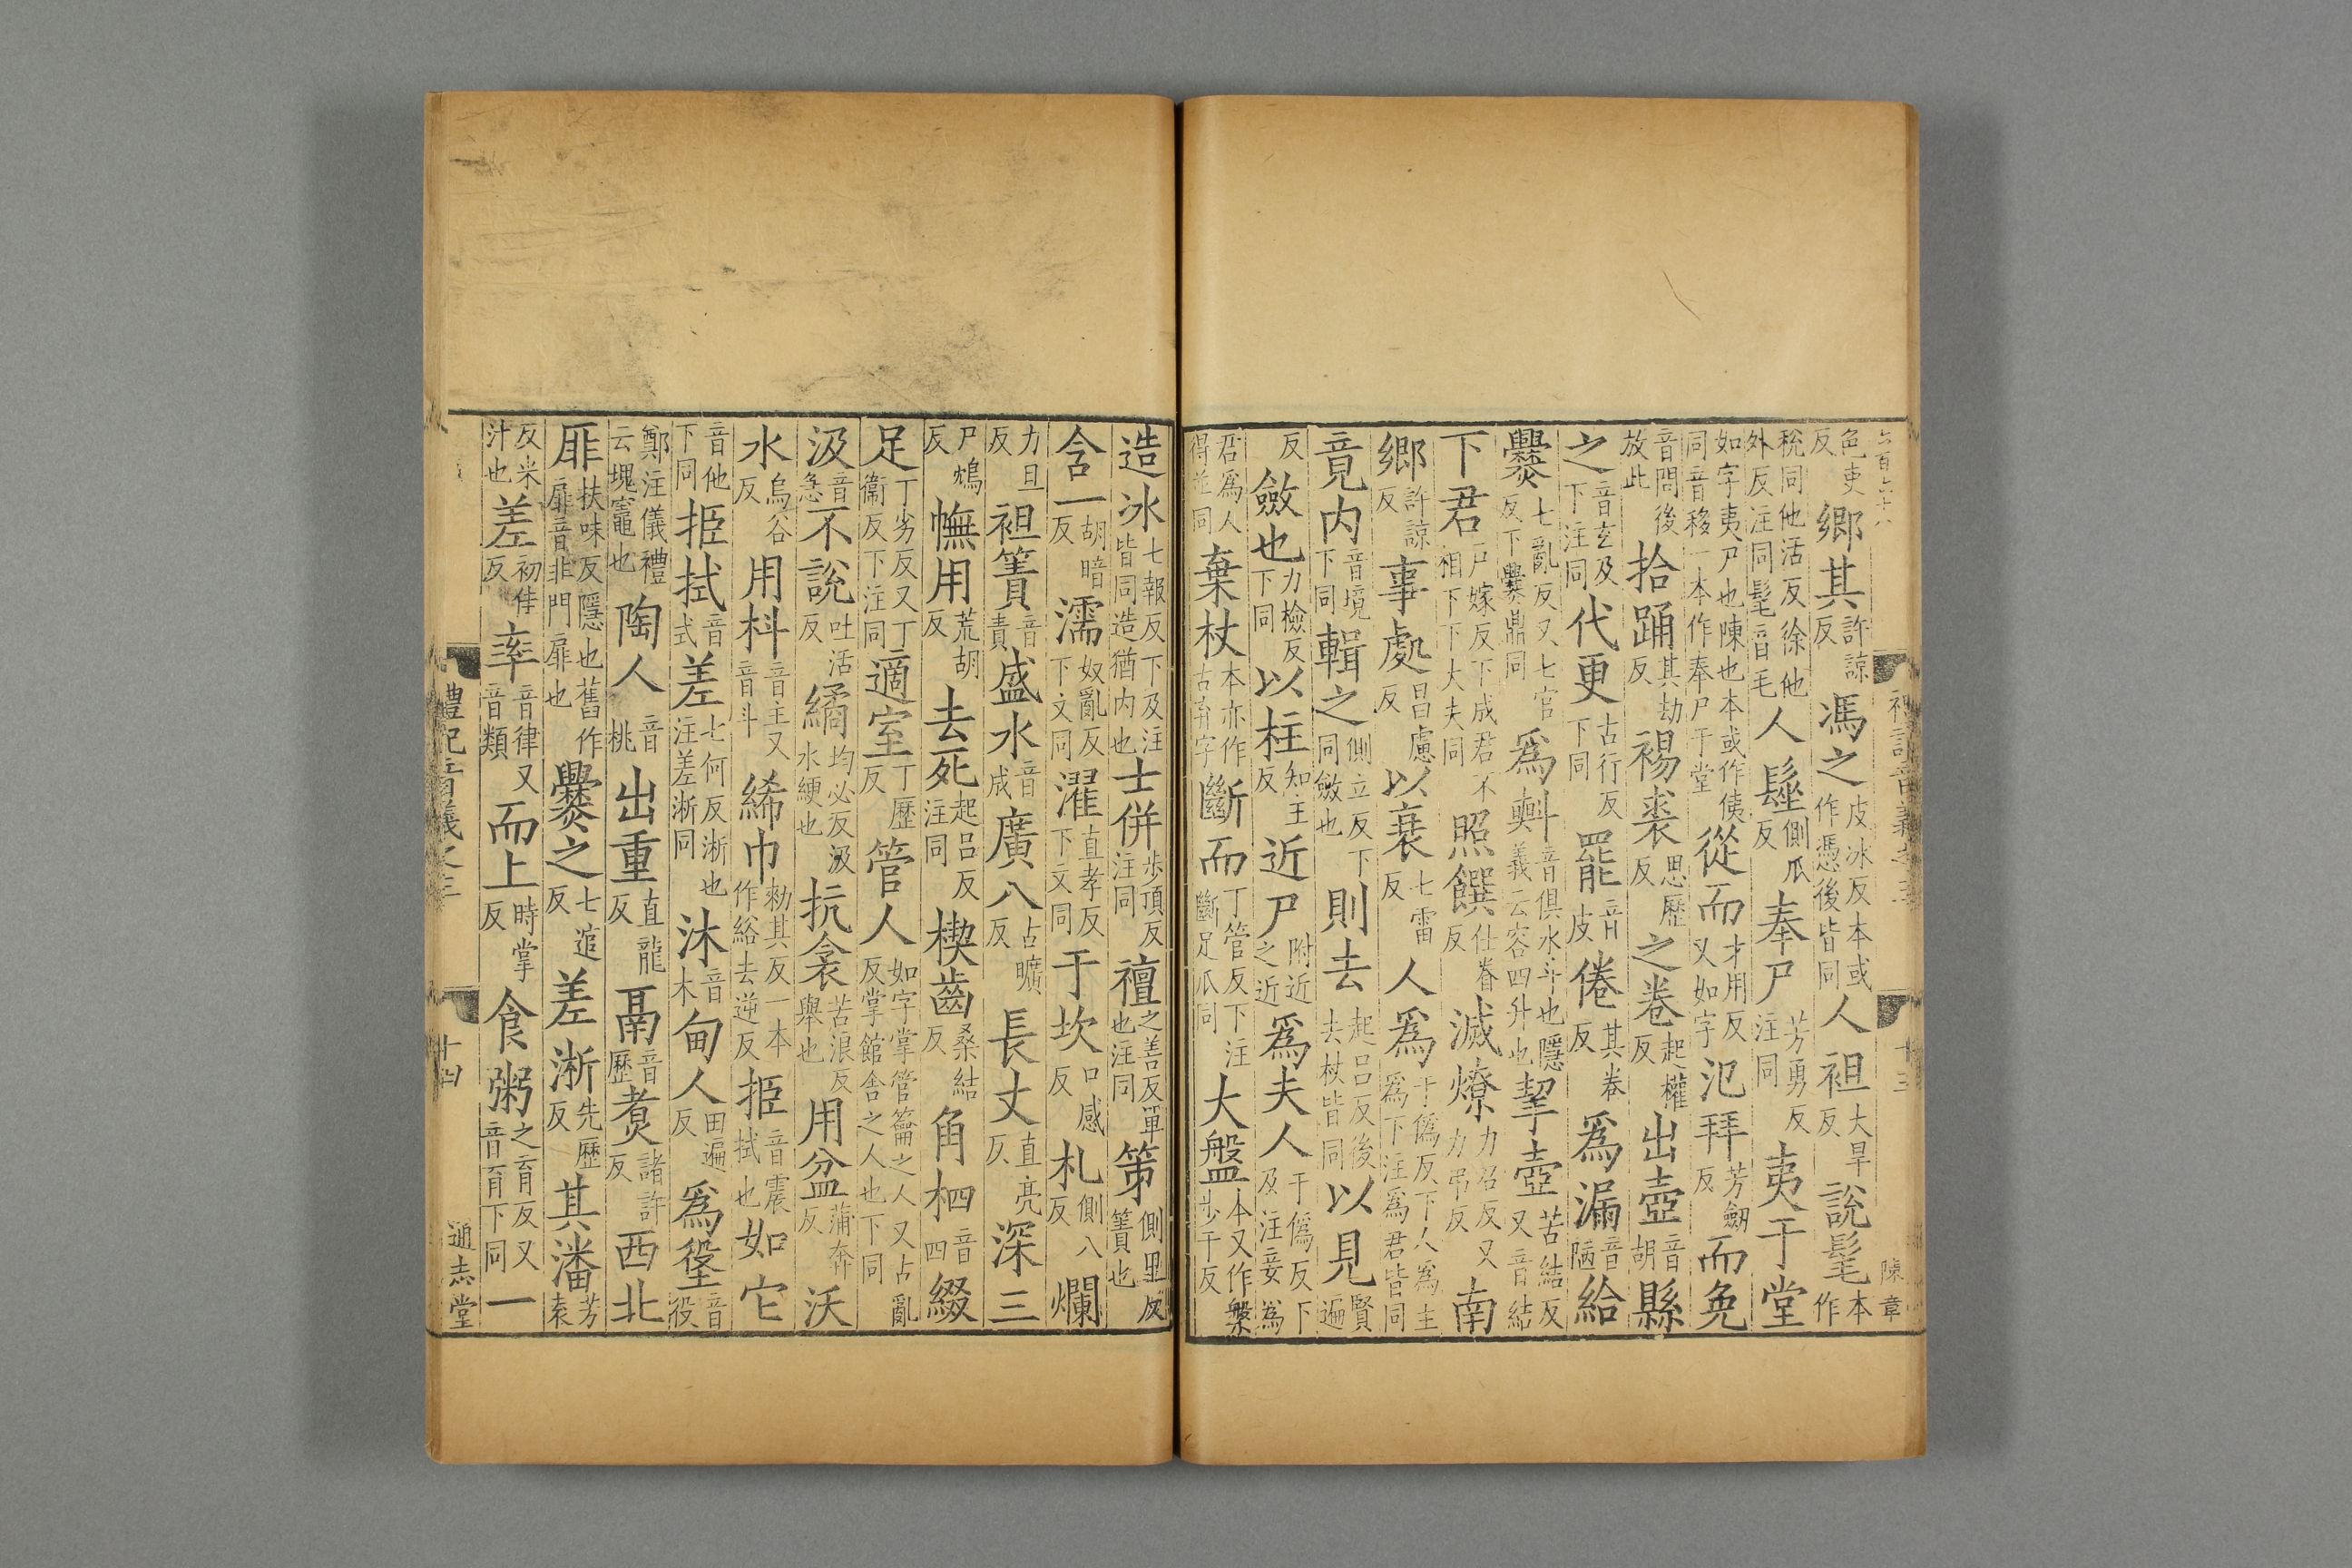 六百六十八 禮記音義之三 十三 陳章
色吏反鄉其許諒反馮之皮冰反本或作憑後皆同人袒大旱反說髦本作
稅同他活反徐他外反注同髦音毛人髽側瓜反奉尸芳勇反注同夷于堂
如字夷尸也陳也本或作侇同音移一本作奉尸于堂從而才用反又如字氾拜芳劒反而免
音問後放此拾踊其劫反裼裘思歷反之卷起權反出壺音胡縣
之音玄及下注同代更古行反下同罷音皮倦其卷反爲漏音陋給
爨七亂反又七官反下爨鼎同爲㪺音俱水斗也隱義云容四升也挈壺苦結反又音結
下君戶嫁反下成君不相下下大夫同照饌仕眷反滅燎力召反又力弔反南
鄉許諒反事處昌慮反以衰七雷反人爲于僞反下人爲主爲下注爲君皆同
竟内音境下同輯之側立反下同斂也則去起呂反後去杖皆同以見賢遍
反斂也力檢反下同以柱知主反近尸附近之近爲夫人于僞反下及注妾爲
君爲人得並同棄杖本亦作古弃字斷而丁管反下注斷足爪同大盤本又作槃步干反
造冰七報反下及注皆同造猶内也士併步頂反注同襢之善反單也注同笫側里反簀也
含一胡暗反濡奴亂反下文同濯直孝反下文同于坎口感反札側八反爛
力旦反袒簀音責盛水音成廣八古曠反長丈直亮反深三
尸鴆反幠用荒胡反去死起呂反注同楔齒桑結反角柶音四綴
足丁劣反又丁衞反下注同適室丁歷反管人如字掌管籥之人又古亂反掌館舍之人也下同
汲音急不說吐活反繘均必反汲水綆也抗衾苦浪反舉也用盆蒲奔反沃
水烏谷反用枓音主又音斗絺巾勑其反一本作綌去逆反挋音震拭也如它
音他下同挋拭音式差七何反淅也注差淅同沐音木甸人田遍反爲垼音役
鄭注儀禮云塊竈也陶人音桃出重直龍反鬲音歷煑諸許反西北
厞扶味反隱也舊作扉音非門扉也爨之七逭反差淅先歷反其潘芳袁
反米汁也差初佳反率音律又音類而上時掌反食粥之育反又音育下同一
禮記音義之三 十四 通志堂